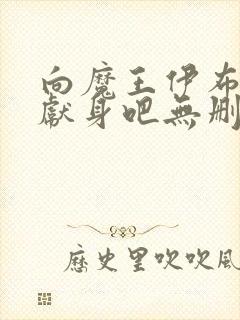 向魔王伊布
獻身吧無刪
歷史里吹吹風